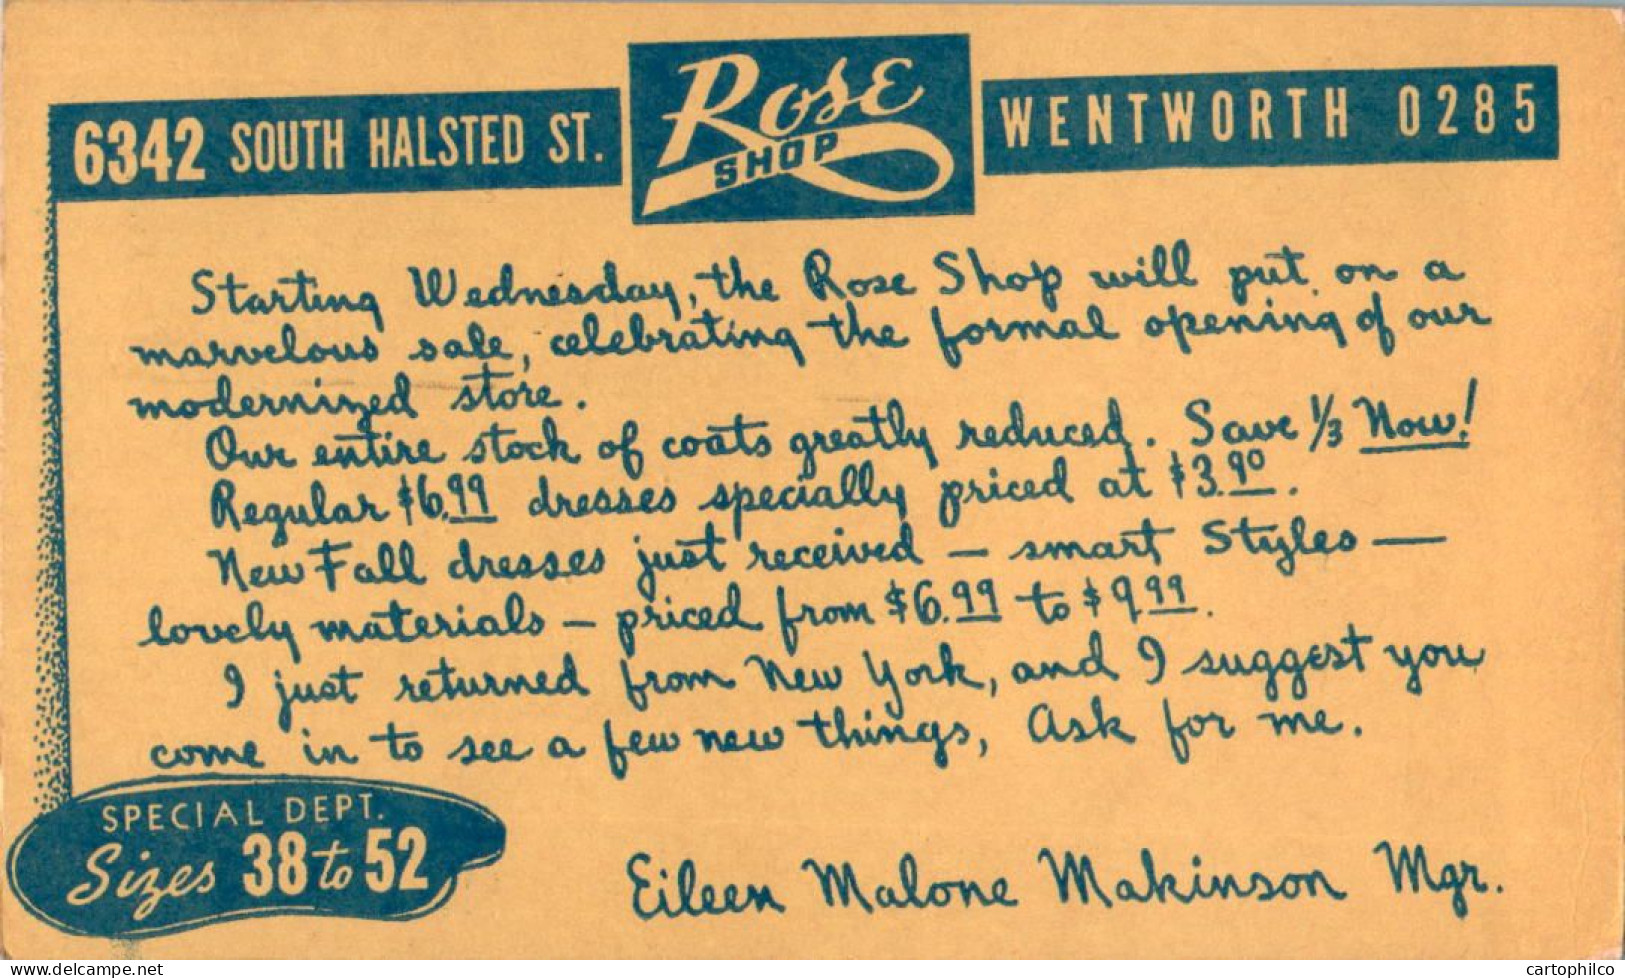 6342 SOUTH HALSTED ST.
Rose
SHOP
WENTWORTH 0285
Starting Wednesday, the Rose Shop will put on a
marvelous sale, celebrating the formal opening of our
modernized store.
Our entire stock of coats greatly reduced. Save 1/3 Now!
Regular $6.99 dresses specially priced at $3.90.
New Fall dresses just received — smart Styles —
lovely materials — priced from $6.99 to $9.99.
I just returned from New York, and I suggest you
come in to see a few new things, Ask for me.
SPECIAL DEPT.
Sizes 38 to 52
Eileen Malone Makinson Mgr.
www.delcampe.net
cartophilco